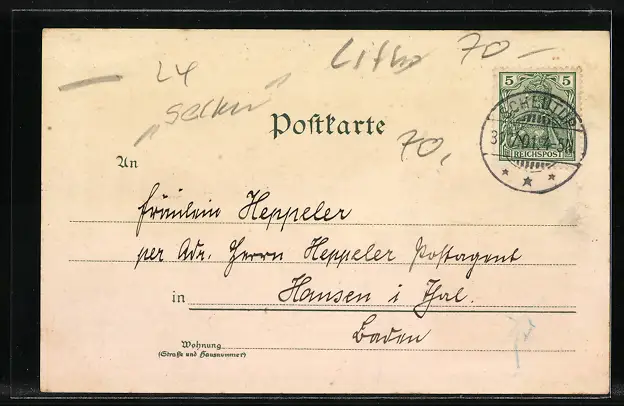 Litho 70 —
L4
"Selten"
Postkarte
70,
5 5
REICHSPOST
An
Fräulein Heppeler
per Adr. Herrn Heppeler Postagent
in Hausen i Thal.
Baden
Wohnung
(Straße und Hausnummer)